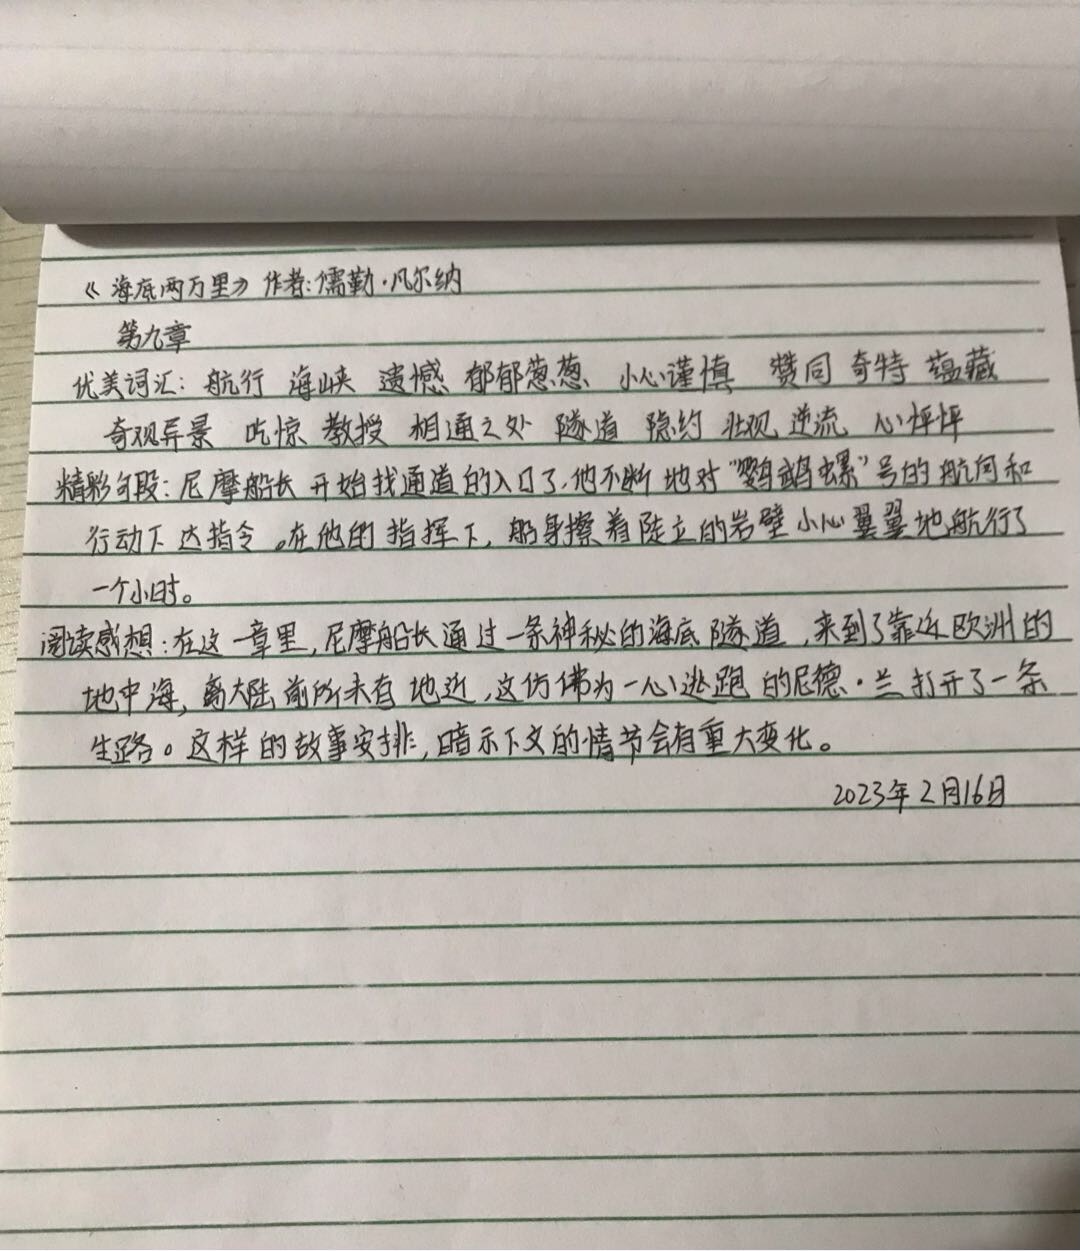 《海底两万里》作者:儒勒·凡尔纳
第九章
优美词汇: 航行 海峡 遗憾 郁郁葱葱 小心谨慎 赞同 奇特 蕴藏
奇观异景 吃惊 教授 相通之处 隧道 隐约 壮观 逆流 心怦怦
精彩句段: 尼摩船长开始找通道的入口了,他不断地对"鹦鹉螺"号的航向和
行动下达指令。在他的指挥下,船身擦着陡立的岩壁小心翼翼地航行了
一个小时。
阅读感想:在这一章里,尼摩船长通过一条神秘的海底隧道,来到了靠近欧洲的
地中海,离大陆前所未有地近,这仿佛为一心逃跑的尼德·兰打开了一条
生路。这样的故事安排,暗示下文的情节会有重大变化。
2023年2月16日